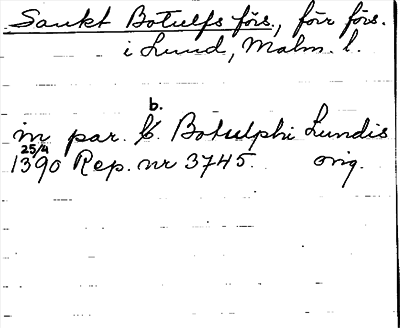 Sankt Botulfs förs., förr förs.
i Lund, Malm. l.
b.
in par. b. Botulphi Lundis
1390 25/4 Rep. nr 3745. orig.